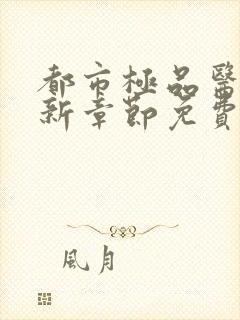 都市極品醫
新章節免費
風月